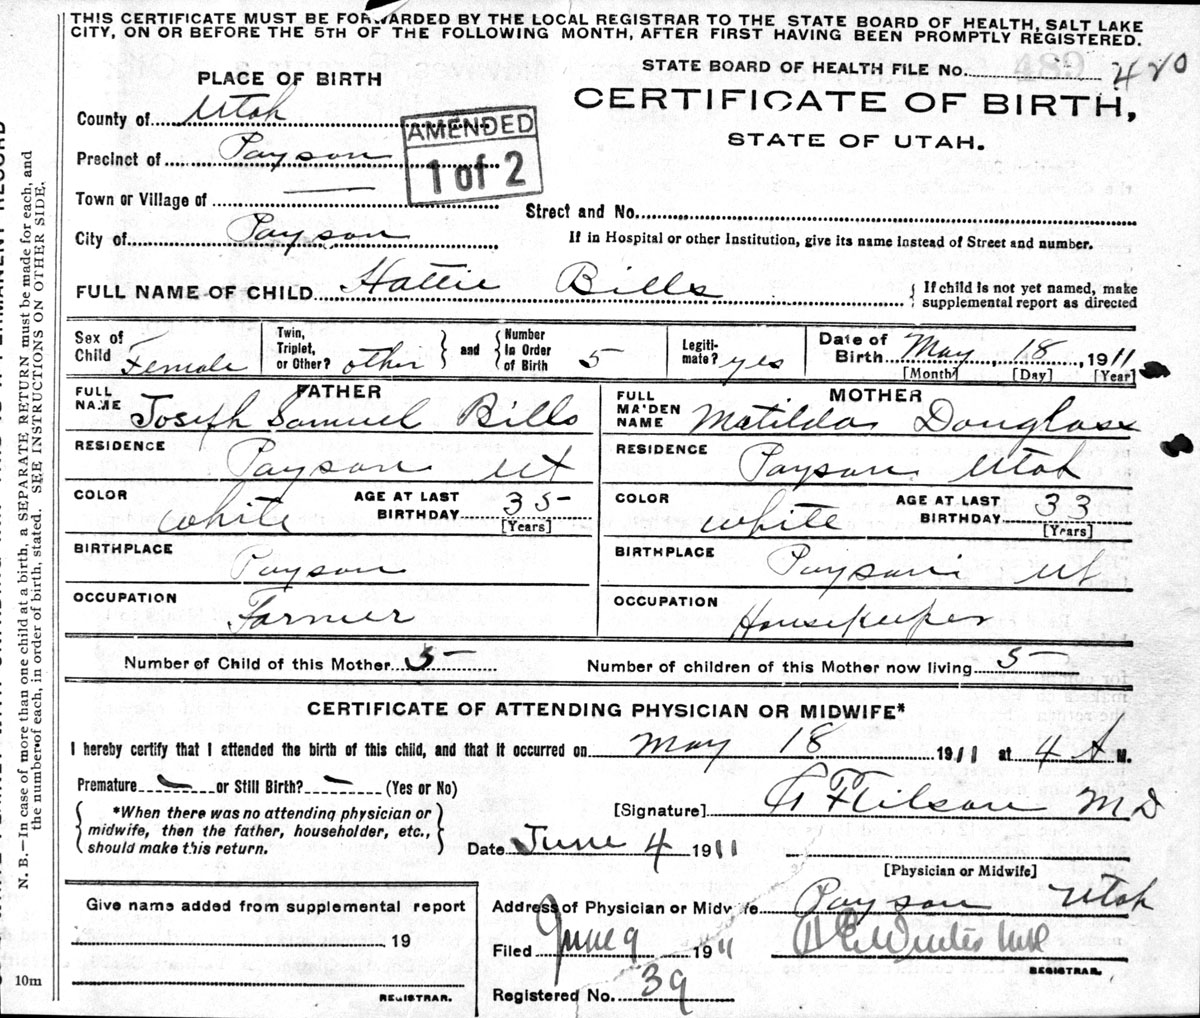 THIS CERTIFICATE MUST BE FORWARDED BY THE LOCAL REGISTRAR TO THE STATE BOARD OF HEALTH, SALT LAKE
CITY, ON OR BEFORE THE 5TH OF THE FOLLOWING MONTH, AFTER FIRST HAVING BEEN PROMPTLY REGISTERED.
PLACE OF BIRTH
STATE BOARD OF HEALTH FILE No. 420
CERTIFICATE OF BIRTH,
STATE OF UTAH.
County of Utah
AMENDED
1 of 2
Precinct of Payson
Town or Village of
Street and No.
City of Payson
If in Hospital or other Institution, give its name instead of Street and number.
FULL NAME OF CHILD Hattie Bills
{ If child is not yet named, make
supplemental report as directed
Sex of Child Female
Twin, Triplet, or Other? other
and
Number in Order of Birth 5
Legitimate? yes
Date of Birth May 18, 1911
[Month] [Day] [Year]
FATHER
FULL NAME Joseph Samuel Bills
MOTHER
FULL MAIDEN NAME Matilda Douglass
RESIDENCE Payson Ut
RESIDENCE Payson Utah
COLOR white
AGE AT LAST BIRTHDAY 35
[Years]
COLOR white
AGE AT LAST BIRTHDAY 33
[Years]
BIRTHPLACE Payson
BIRTHPLACE Payson Ut
OCCUPATION Farmer
OCCUPATION Housekeeper
Number of Child of this Mother 5
Number of children of this Mother now living 5
CERTIFICATE OF ATTENDING PHYSICIAN OR MIDWIFE*
I hereby certify that I attended the birth of this child, and that it occurred on May 18 1911 at 4 A M.
Premature - or Still Birth? - (Yes or No)
[Signature] M D
{ *When there was no attending physician or
midwife, then the father, householder, etc.,
should make this return. }
Date June 4 1911
[Physician or Midwife]
Give name added from supplemental report
19
REGISTRAR.
Address of Physician or Midwife Payson Utah
Filed June 9 1911
REGISTRAR.
Registered No. 39
N. B.—In case of more than one child at a birth, a SEPARATE RETURN must be made for each, and
the number of each, in order of birth, stated. SEE INSTRUCTIONS ON OTHER SIDE.
10m